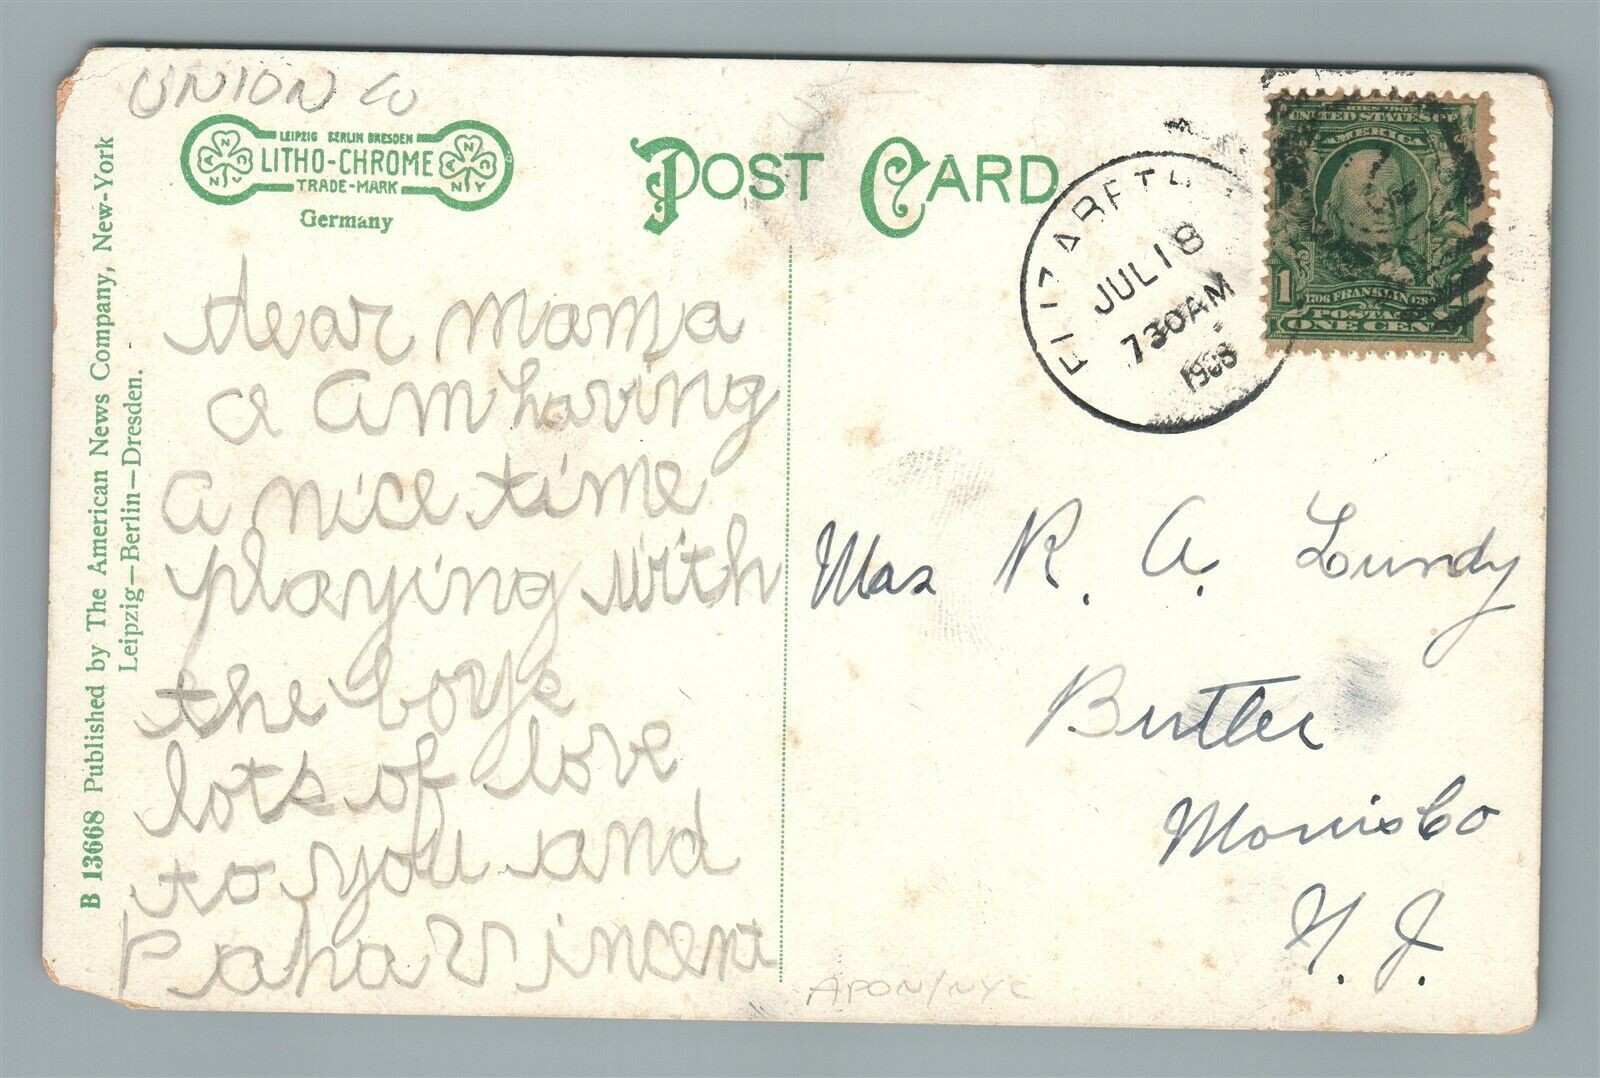 UNION Co
LEIPZIG BERLIN DRESDEN
LITHO-CHROME
TRADE-MARK
Germany
POST CARD
B 13668 Published by The American News Company, New-York
Leipzig—Berlin—Dresden.
dear mama
a am having
a nice time
playing with
the boys
lots of love
to you and
Papa Vincent
ELIZABETH
JUL 18
730AM
1908
UNITED STATES OF
AMERICA
1706 FRANKLIN
POSTAGE
ONE CENT
1
Mrs R. A. Lundy
Butler
Morris Co
N. J.
APON/NYC